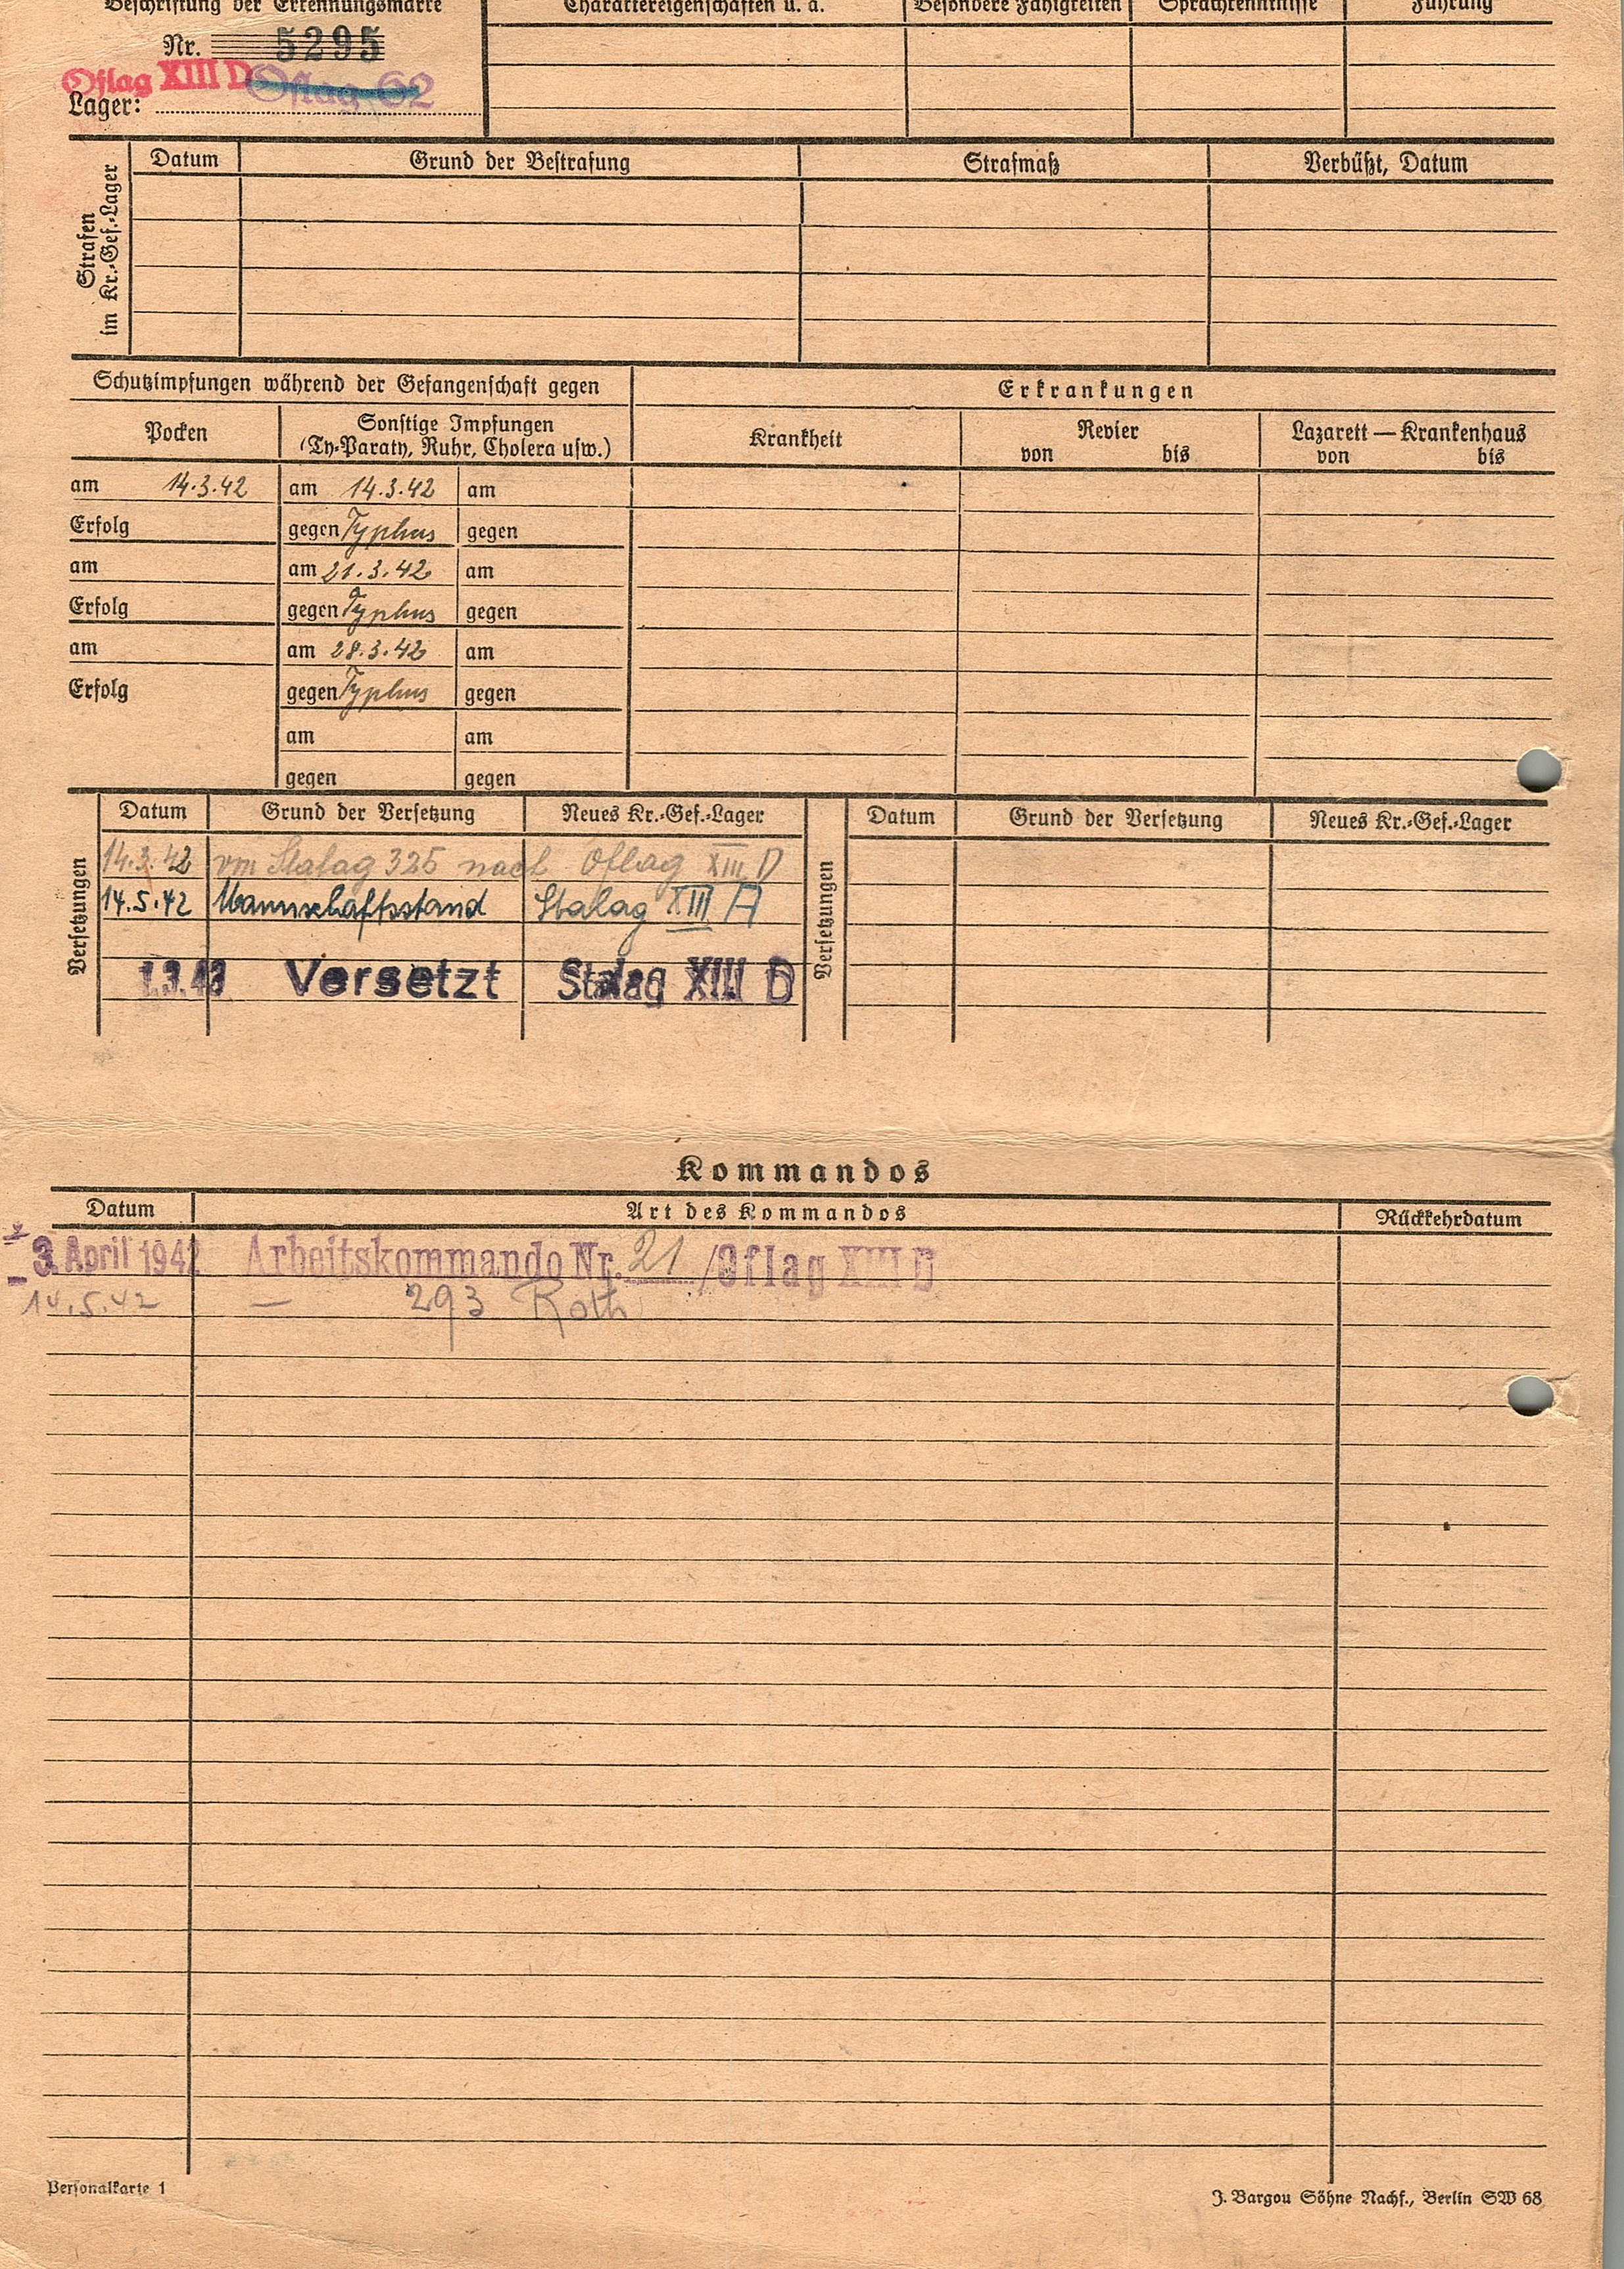 Beschriftung der Erkennungsmarke
Charaktereigenschaften u. ä.
Besondere Fähigkeiten
Sprachkenntnisse
Führung
Nr. 5295
Oflag XIII D Oflag 62
Lager:
Strafen
im Kr.-Gef.-Lager
Datum
Grund der Bestrafung
Strafmaß
Verbüßt, Datum
Schutzimpfungen während der Gefangenschaft gegen
Erkrankungen
Pocken
Sonstige Impfungen
(Ty-Paraty, Ruhr, Cholera usw.)
Krankheit
Revier
von bis
Lazarett — Krankenhaus
von bis
am 14.3.42 am 14.3.42 am
Erfolg gegen Typhus gegen
am am 21.3.42 am
Erfolg gegen Typhus gegen
am am 28.3.42 am
Erfolg gegen Typhus gegen
am am
gegen gegen
Versetzungen
Datum Grund der Versetzung Neues Kr.-Gef.-Lager
14.3.42 vom Stalag 325 nach Oflag XIII D
14.5.42 Mannschaftsstand Stalag XIII A
1.3.43 Versetzt Stalag XIII D
Versetzungen
Datum Grund der Versetzung Neues Kr.-Gef.-Lager
Kommandos
Datum Art des Kommandos Rückkehrdatum
3. April 1942 Arbeitskommando Nr. 21 /Oflag XIII D
14.5.42 — 293 Roth
Personalkarte 1
J. Bargou Söhne Nachf., Berlin SW 68